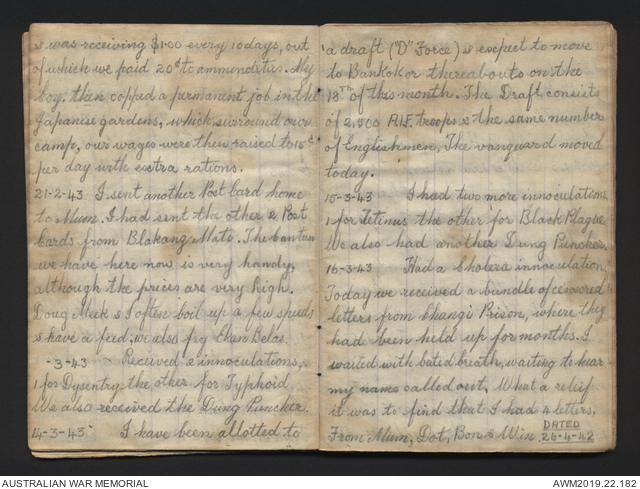 & was receiving $1.00 every 10 days, out
of which we paid 20¢ to ammenditis. My
boy. then copped a permanent job in the
Japanise gardens, which surround our
camp, our wages were then raised to 15¢
per day with exstra rations.
21-2-43 I sent another Post Card home
to Mum. I had sent the other 2 Post
Cards from Blakang Mati. The Canteen
we have here now is very handy,
although the prices are very high.
Doug Meek & I often boil up a few spuds
& have a feed. we also fry Ekan Belas.
-3-43 Received 2 innoculations,
1 for Dysentry the other for Typhoid
We also received the Dung Puncher.
14-3-43 I have been allotted to
a draft ("D" Force) & expect to move
to Bankok or thereabouts on the
18th of this month. The Draft consists
of 2,500 A.I.F. troops & the same number
of Englishmen. The vanguard moved
today.
15-3-43 I had two more innoculations
1 for Tetinus the other for Black Plague
We also had another Dung Puncher.
16-3-43 Had a Cholera innoculation
Today we received a bundle of censored
letters from Changi Prison, where they
had been held up for months. I
waited with bated breath, waiting to hear
my name called out. What a relief
it was to find that I had 4 letters,
From Mum, Dot, Bon & Win. DATED 26-4-42
AUSTRALIAN WAR MEMORIAL
AWM2019.22.182